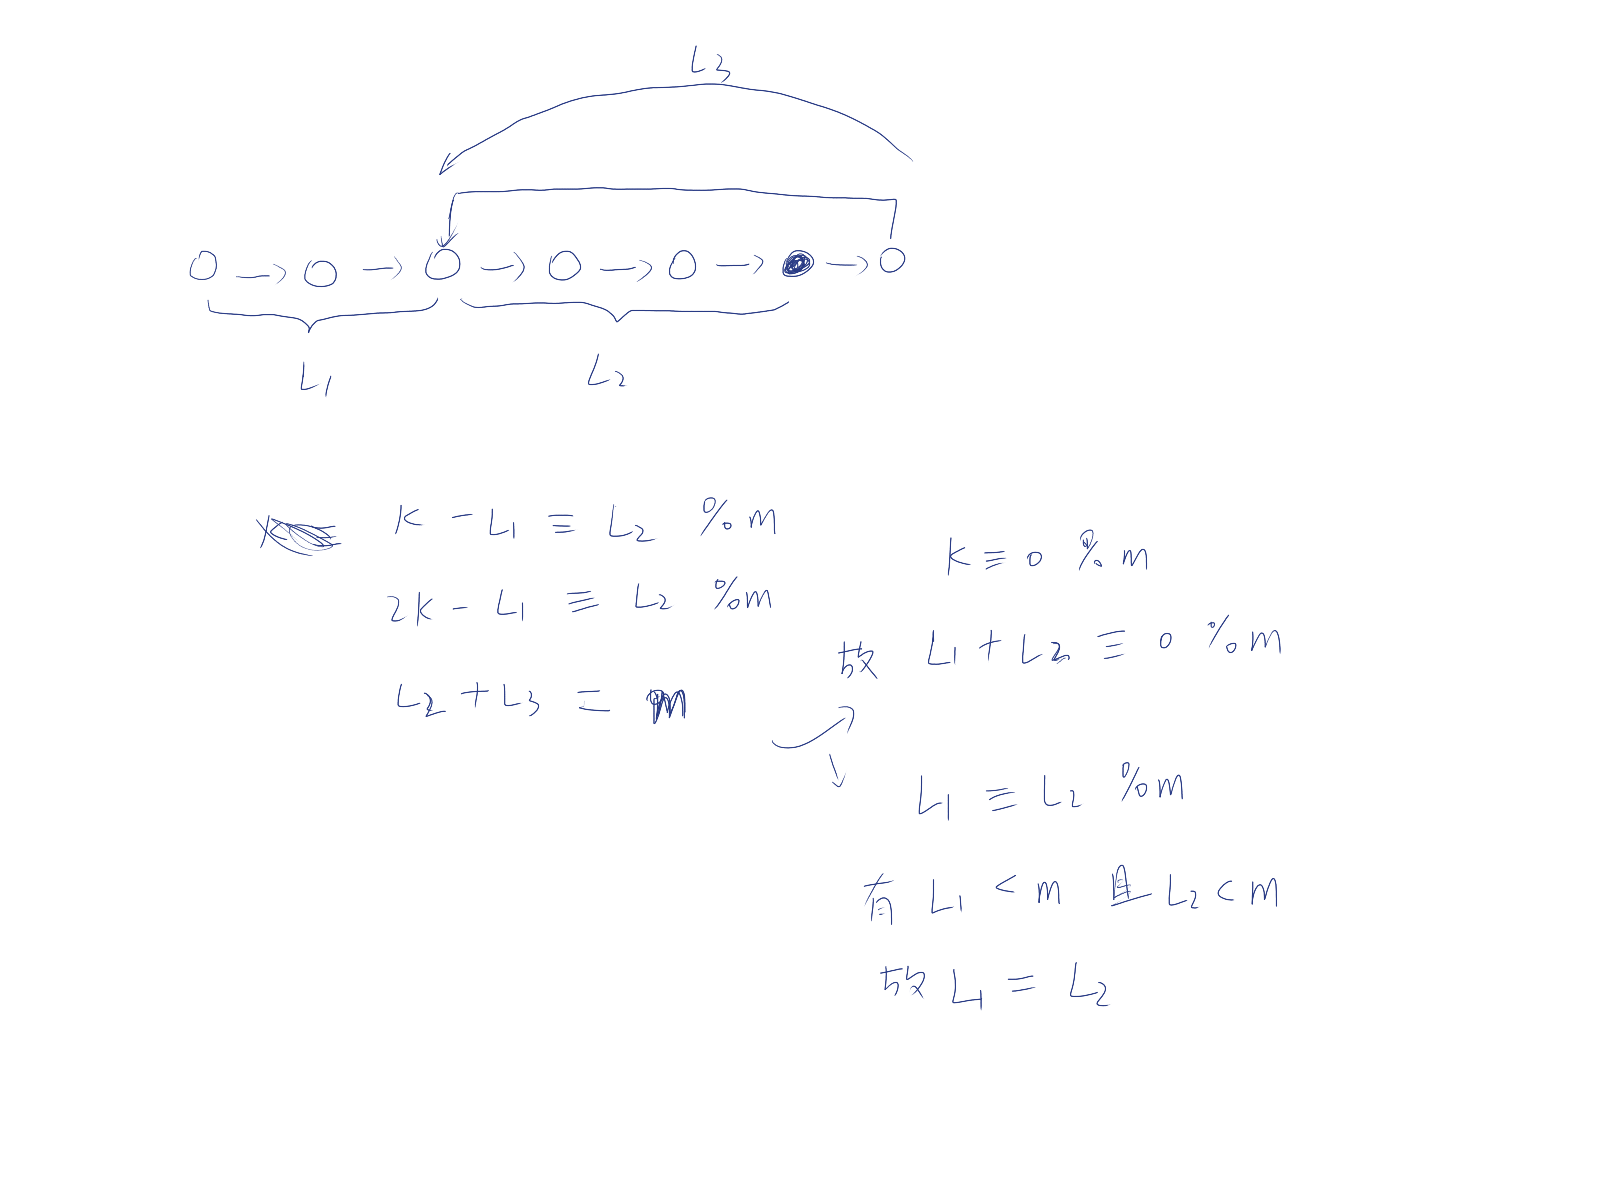 L3
L1
L2
K - L1 ≡ L2 %m
2K - L1 ≡ L2 %m
L2 + L3 = m
K ≡ 0 %m
故 L1 + L2 ≡ 0 %m
L1 ≡ L2 %m
有 L1 < m 且 L2 < m
故 L1 = L2